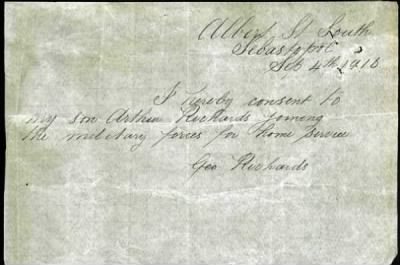 Albert St South
Sebastopol
Sep 4th
I hereby consent to
my son Arthur Richards joining
the military forces for home service
Geo Richards